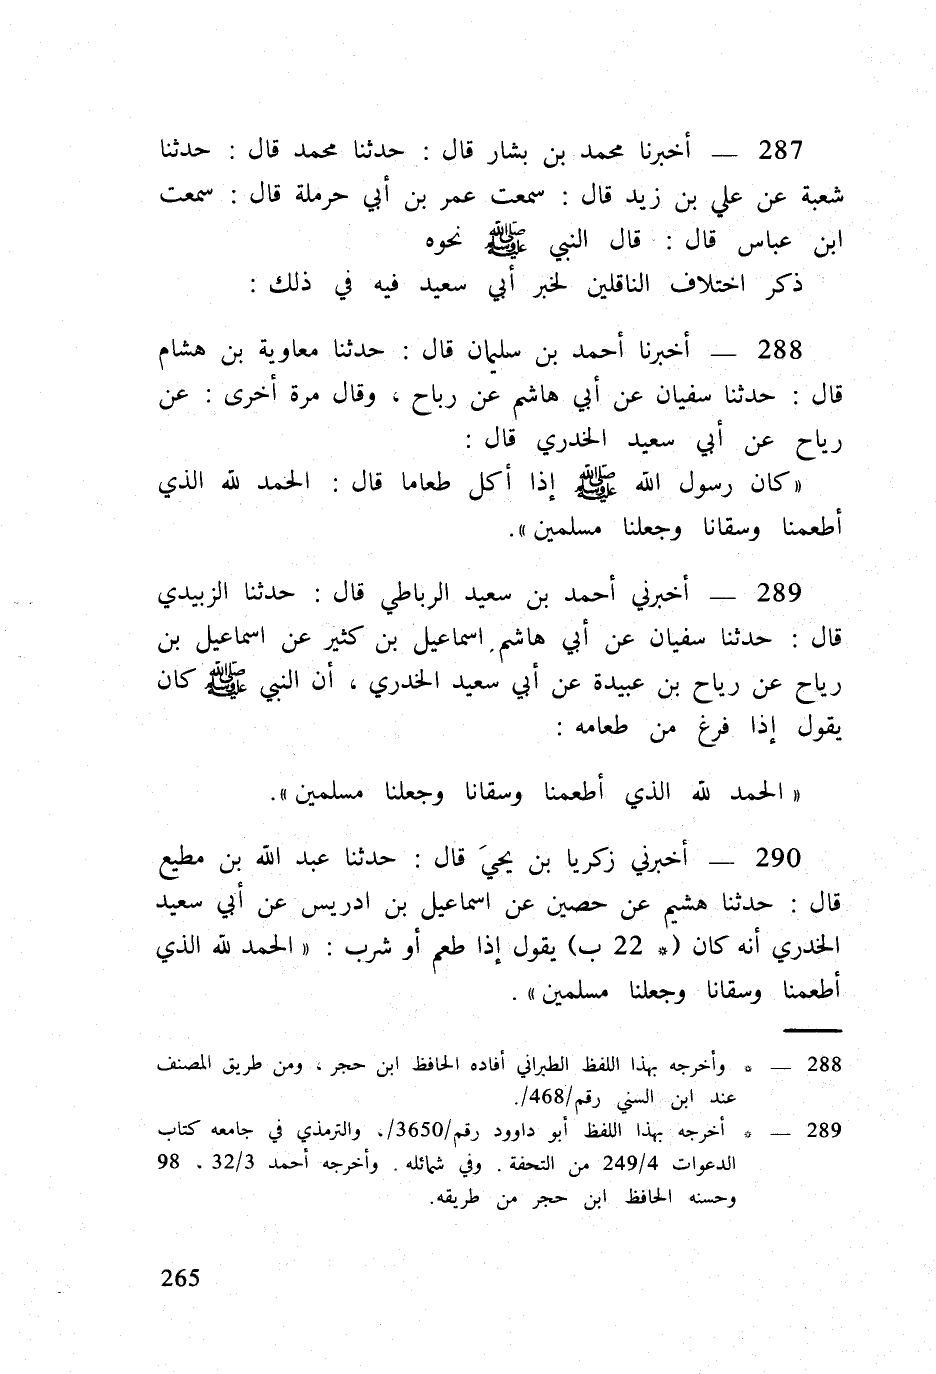 287 — أخبرنا محمد بن بشار قال : حدثنا محمد قال : حدثنا
شعبة عن علي بن زيد قال : سمعت عمر بن أبي حرملة قال : سمعت
ابن عباس قال : قال النبي ﷺ نحوه
ذكر اختلاف الناقلين لخبر أبي سعيد فيه في ذلك :
288 — أخبرنا أحمد بن سليمان قال : حدثنا معاوية بن هشام
قال : حدثنا سفيان عن أبي هاشم عن رباح ، وقال مرة أخرى : عن
رياح عن أبي سعيد الخدري قال :
«كان رسول الله ﷺ إذا أكل طعاما قال : الحمد لله الذي
أطعمنا وسقانا وجعلنا مسلمين».
289 — أخبرني أحمد بن سعيد الرباطي قال : حدثنا الزبيدي
قال : حدثنا سفيان عن أبي هاشم اسماعيل بن كثير عن اسماعيل بن
رياح عن رياح بن عبيدة عن أبي سعيد الخدري ، أن النبي ﷺ كان
يقول إذا فرغ من طعامه :
« الحمد لله الذي أطعمنا وسقانا وجعلنا مسلمين».
290 — أخبرني زكريا بن يحيَ قال : حدثنا عبد الله بن مطيع
قال : حدثنا هشيم عن حصين عن اسماعيل بن ادريس عن أبي سعيد
الخدري أنه كان (* 22 ب) يقول إذا طعم أو شرب : « الحمد لله الذي
أطعمنا وسقانا وجعلنا مسلمين» .
288 — * وأخرجه بهذا اللفظ الطبراني أفاده الحافظ ابن حجر ، ومن طريق المصنف
عند ابن السني رقم/468/.
289 — * أخرجه بهذا اللفظ أبو داوود رقم/3650/، والترمذي في جامعه كتاب
الدعوات 249/4 من التحفة . وفي شمائله . وأخرجه أحمد 32/3 . 98
وحسنه الحافظ ابن حجر من طريقه.
265